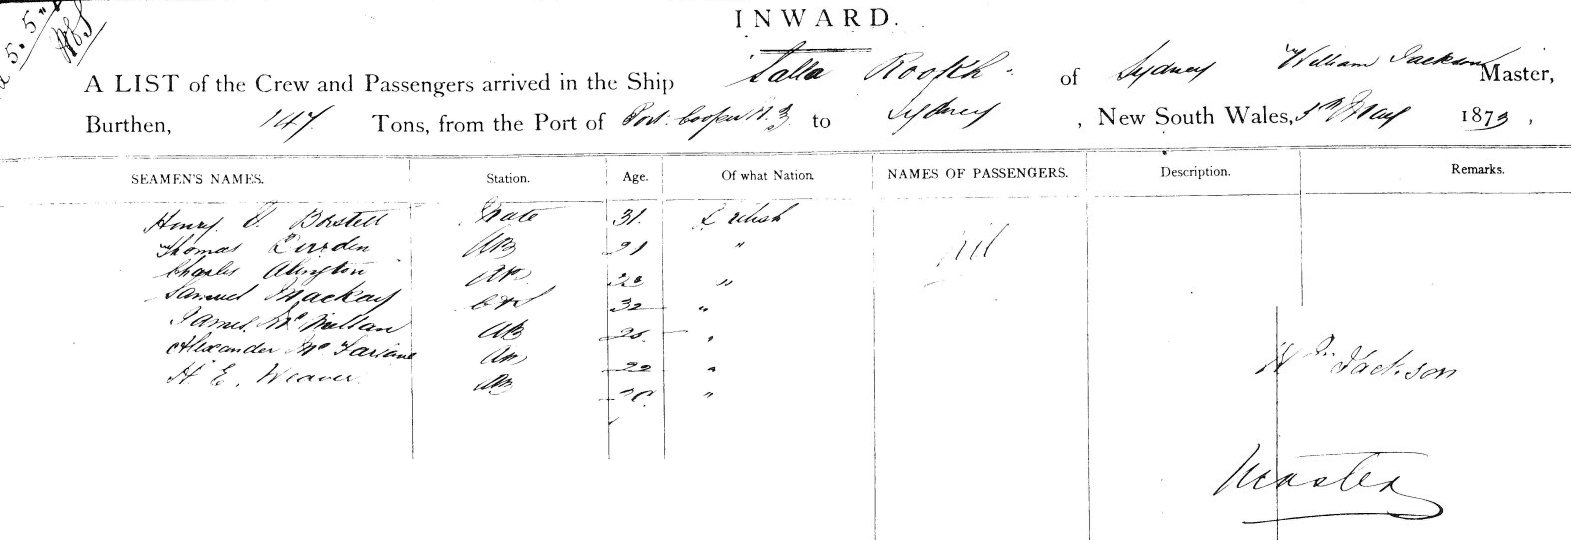 5.5.
INWARD.
A LIST of the Crew and Passengers arrived in the Ship Lalla Rookh of Sydney William Jackson Master,
Burthen, 147 Tons, from the Port of Port Cooper N.Z. to Sydney, New South Wales, 5th May 1873,
SEAMEN'S NAMES. Station. Age. Of what Nation. NAMES OF PASSENGERS. Description. Remarks.
Henry V. Borstell Mate 31. British Nil
Thomas AB 21 "
Charles Alington AB "
Samuel Mackay 32 "
James Mc Millan AB "
Alexander Mc Farlane AB 22 "
H E. Weaver AB "
Wm Jackson
Master